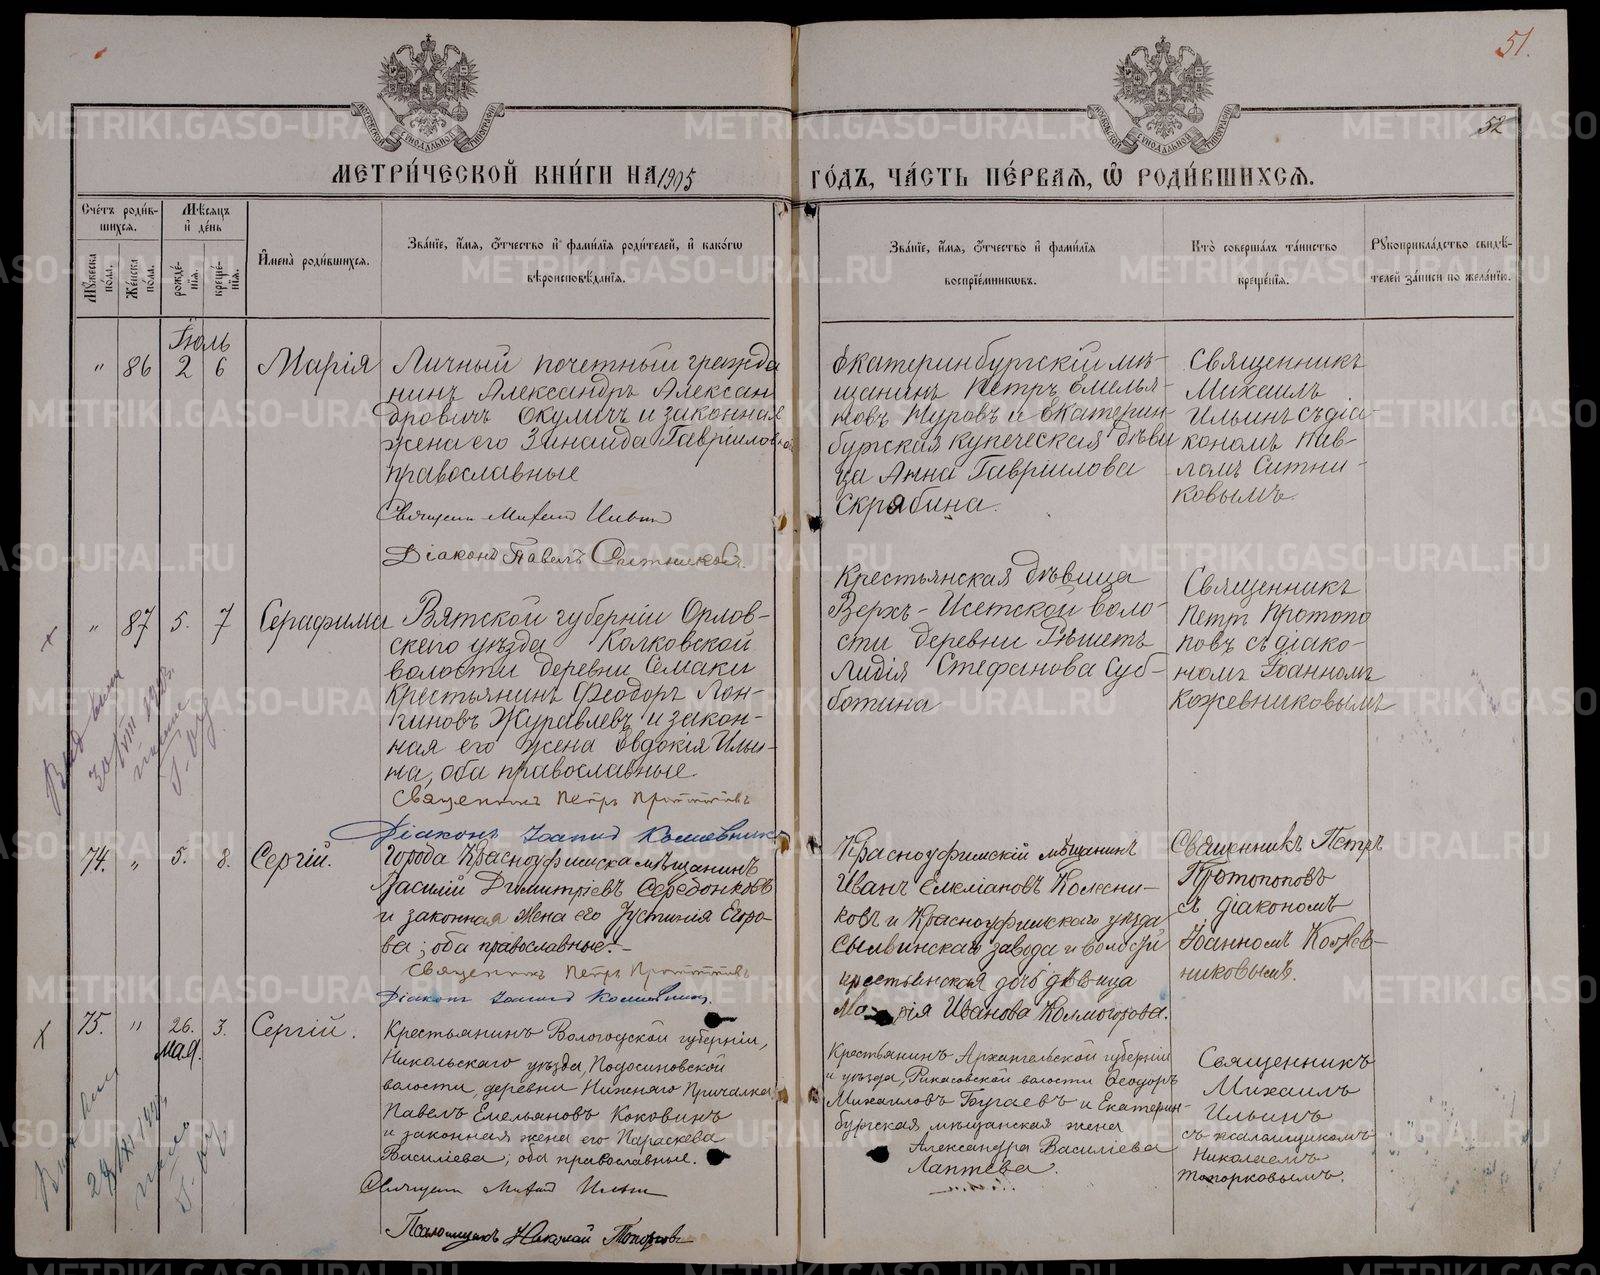 51.
52
МЕТРИ́ЧЕСКОЙ КНИ́ГИ НА 1905
ГО́ДЪ, ЧА́СТЬ ПЕ́РВАѦ, Ѽ РОДИ́ВШИХСѦ.
Сче́тъ роди́в-
шихсѧ.
Мѣ́сѧцъ
и҆ де́нь
Мꙋ́жеска
по́ла.
Же́нска
по́ла.
рожде́-
нїѧ.
креще́-
нїѧ.
И҆мена̀ роди́вшихсѧ.
Зва́нїе, и҆́мѧ, ѻ҆́тчество и҆ фами́лїѧ роди́телей, и҆ како́гѡ
вѣроисповѣ́данїѧ.
Зва́нїе, и҆́мѧ, ѻ҆́тчество и҆ фами́лїѧ
воспрїе́мникѡвъ.
Кто̀ соверша́лъ та́инство
креще́нїѧ.
Рꙋкоприкла́дство свидѣ́-
телей за́писи по жела́нїю.
Іюль
" 86 2 6 Марія
Личный почетный гражда
нинъ Александръ Алексан
дровичъ Окуличъ и законная
жена его Зинаида Гавріилов
православные
Священ Михаил Ильин
Діаконъ Павелъ Ситников.
Екатеринбургскій мѣ-
щанинъ Петръ Емелья-
новъ Нуровъ и Екатерин
бургская купеческая дѣви
ца Анна Гавріилова
Скрябина.
Священникъ
Михаилъ
Ильинъ съ діа-
кономъ Пав-
ломъ Ситни-
ковымъ.
" 87 5. 7 Серафима
Вятской губерніи Орлов-
скаго уѣзда Колковской
волости деревни Семаки
крестьянинъ Феодоръ Лон-
гиновъ Журавлевъ и закон-
ная его жена Евдокія Ильи-
на, оба православные.
Священникъ Петръ Протопоповъ
Діаконъ Іоаннъ Кожевников
Крестьянская дѣвица
Верхъ-Исетской воло-
сти деревни Рѣшетъ
Лидія Стефанова Суб-
ботина
Священникъ
Петръ Протопо
повъ съ діако-
номъ Іоанномъ
Кожевниковымъ
74. " 5. 8. Сергій.
Города Красноуфимска мѣщанинъ
Василій Димитріевъ Середонковъ
и законная жена его Іустинія Егоро-
ва; оба православные.-
Священникъ Петръ Протопоповъ
Діаконъ Іоаннъ Кожевник.
Красноуфимскій мѣщанинъ
Иванъ Емеліановъ Колесни-
ковъ и Красноуфимскаго уѣзда
Сылвинскаго завода и волости
крестьянская дочь дѣвица
Марія Иванова Колмогорова.
Священникъ Петръ
Протопоповъ
съ діакономъ
Іоанномъ Кожев-
никовымъ.
75. " 26. 3. Сергій.
мая.
Крестьянинъ Вологодской губерніи,
Никольскаго уѣзда, Подосиновской
волости, деревни Нижняго Причалка
Павелъ Емельяновъ Коковинъ
и законная жена его Параскева
Василіева; оба православные.
Священ Михаил Ильин
Псаломщикъ Николай Топорков
Крестьянинъ Архангельской губерніи
и уѣзда, Рикасовской волости Ѳеодоръ
Михаиловъ Бугаевъ и Екатерин-
бургская мѣщанская жена
Александра Василіева
Лаптева.
Священникъ
Михаилъ
Ильинъ
съ псаломщикомъ
Николаемъ
Топорковымъ.